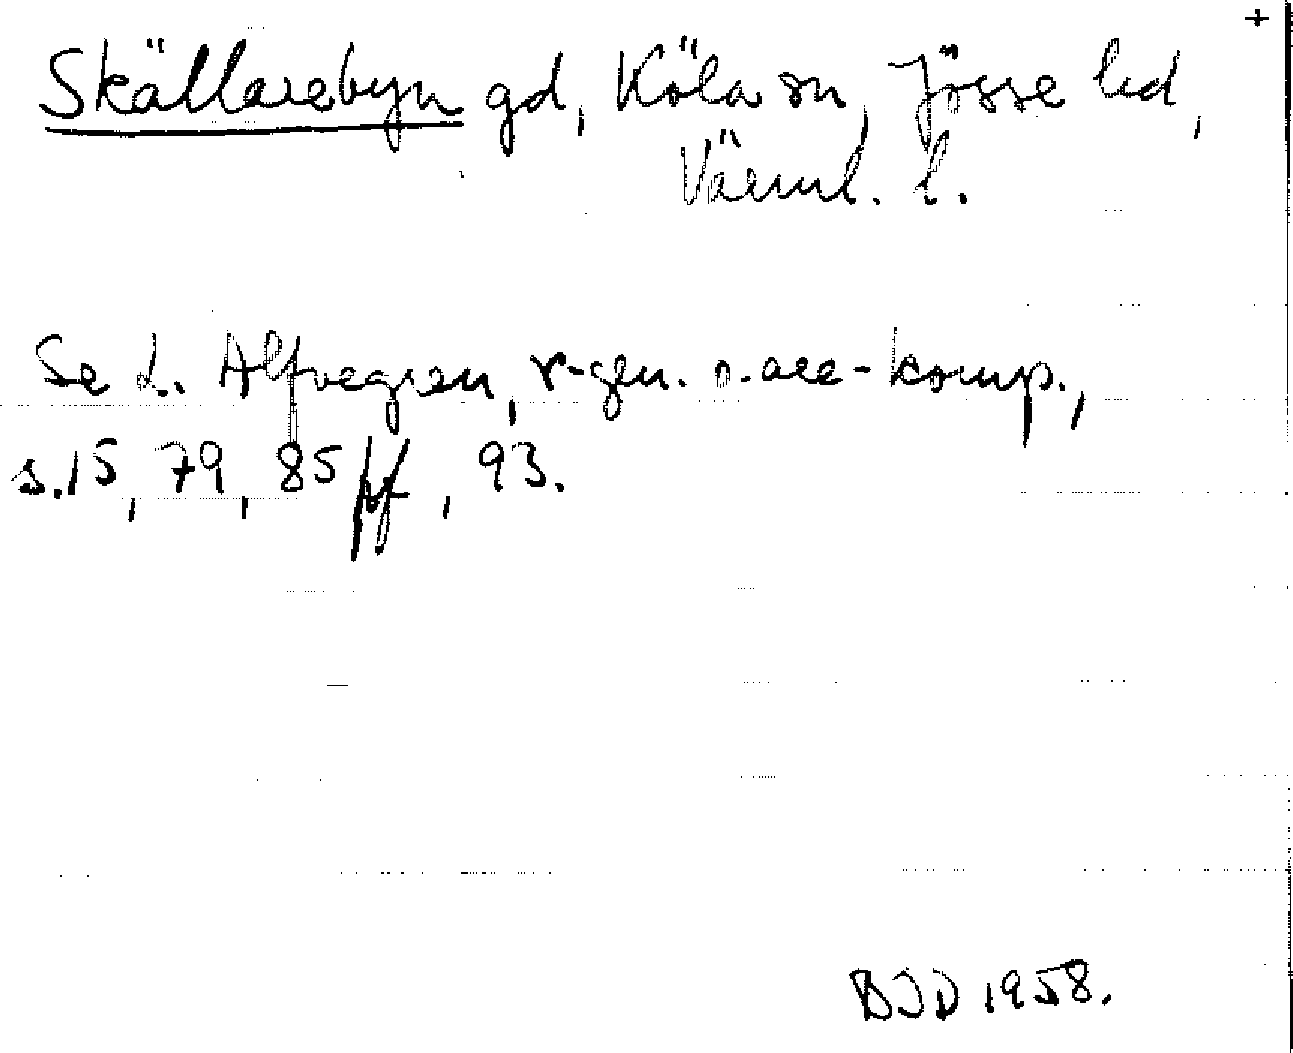 +
Skällarebyn gd, Köla sn, Jösse hd,
Värml. l.
Se L. Alfvegren, r-gen. o. are-komp.,
s. 15, 79, 85 ff, 93.
BJD 1958.